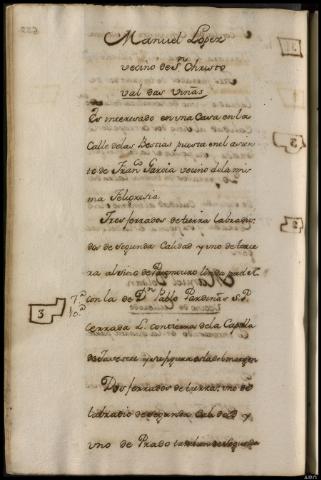 Manuel Lopez
vecino de Sn. Christo
val das Viñas
Es interesado en una Casa en la
Calle delas Bestias puesta en el asien
to de Franco. Garcia vecino dela mis
ma Feligresia
Tres ferrados de tierra labradio
dos de segunda Calidad y uno de terce
ra al sitio de linda
con la de Dn. Pablo Pardiñas S. P.
cerrada L. contiena dela Capilla
de
Dos ferrados de tierra, uno de
labradio de segunda Calidad y
uno de Prado tambien de segunda
7ª
10ª
3
3